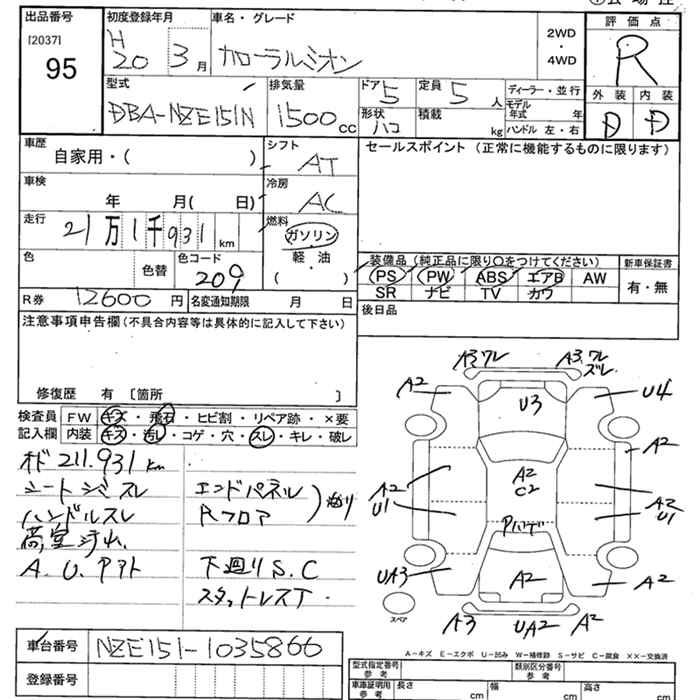 出品番号 初度登録年月 車名・グレード 評価点
[2037] H 20 3月 カローラルミオン 2WD ・ 4WD R
95
型式 排気量 ドア 5 定員 5人 ディーラー・並行 外装 内装
DBA-NZE151N 1500cc 形状 ハコ 積載 kg モデル年式 年 D D
ハンドル 左・右
車歴 自家用・( ) シフト AT セールスポイント (正常に機能するものに限ります)
車検 年 月( 日) 冷房 AC
走行 21万1千931km 燃料 ガソリン
軽・油
( )
色 色替 色コード 209
装備品 (純正品に限り○をつけてください) 新車保証書
PS PW ABS エアB AW 有・無
SR ナビ TV カワ
R券 12600円 名変通知期限 月 日
後日品
注意事項申告欄(不具合内容等は具体的に記入して下さい)
修復歴 有 〔箇所 〕
検査員 FW キズ・飛石・ヒビ割・リペア跡・×要
記入欄 内装 キズ・汚レ・コゲ・穴・スレ・キレ・破レ
オド211.931km
シートシミスレ エンドパネル
ハンドルスレ Rフロア
荷室汚れ
A.U.アト 下廻りS.C
スタットレスT
A3ワレ A3.ワレ
ズレ
A2 U3 U4
A2
A2 A2 A2
U1 C2 U1
UA3 A2 A2
スペア A3 UA2 A2
A-キズ E-エクボ U-凹み W-補修跡 S-サビ C-腐食 XX-交換済
車台番号 NZE151-1035866
登録番号
型式指定番号 参考 類別区分番号 参考
車庫証明用 参考 長さ cm 幅 cm 高さ cm